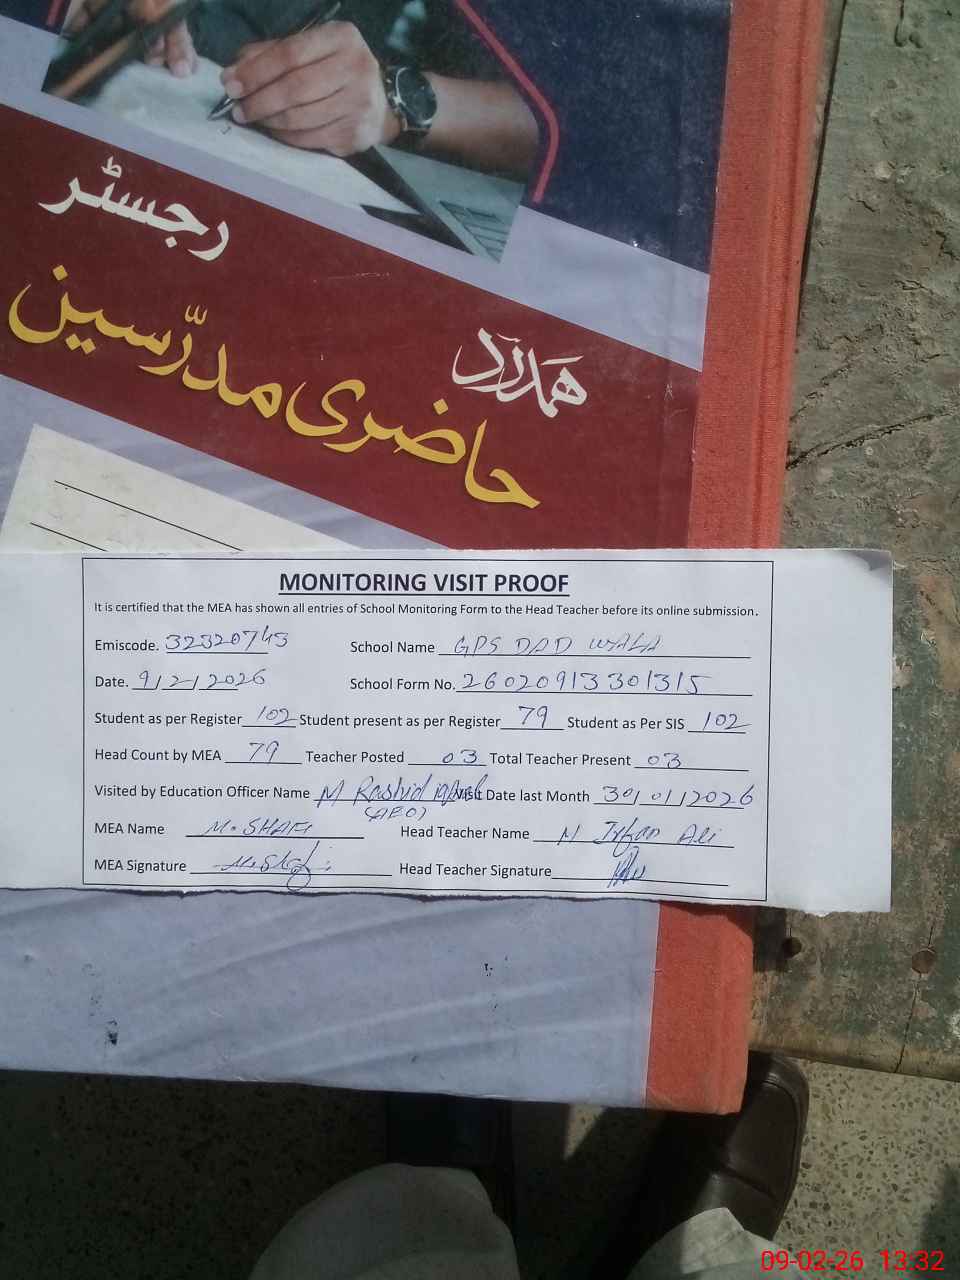 رجسٹر
ہمدرد
حاضری مدرّسین
MONITORING VISIT PROOF
It is certified that the MEA has shown all entries of School Monitoring Form to the Head Teacher before its online submission.
Emiscode. 32320745 School Name GPS DAD WALA
Date. 9/2/2026 School Form No. 26020913301315
Student as per Register 102 Student present as per Register 79 Student as Per SIS 102
Head Count by MEA 79 Teacher Posted 03 Total Teacher Present 03
Visited by Education Officer Name M Rashid iqbal Visit Date last Month 30/01/2026
(AEO)
MEA Name M. SHAFI Head Teacher Name M Irfan Ali
MEA Signature M. Shafi Head Teacher Signature
09-02-26 13:32